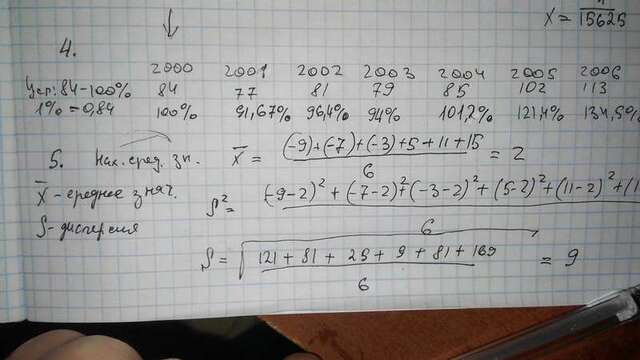 X = 15625
4.
2000 2001 2002 2003 2004 2005 2006
Усл: 84 - 100% 84 77 81 79 85 102 113
1% = 0,84 100% 91,67% 96,4% 94% 101,2% 121,4% 134,5%
5. Нах. сред. зн. X̅ = (-9)+(-7)+(-3)+5+11+15 / 6 = 2
X̅ - среднее знач.
S² = (-9-2)² + (-7-2)² + (-3-2)² + (5-2)² + (11-2)² + (1 / 6
S - дисперсия
S = √ 121 + 81 + 25 + 9 + 81 + 169 / 6 = 9